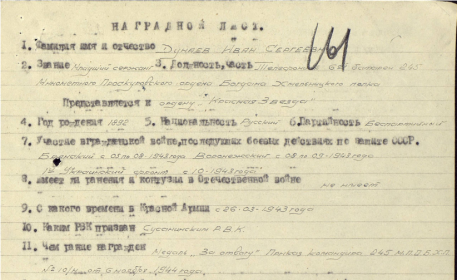 НАГРАДНОЙ ЛИСТ.
1. Фамилия имя и отчество Дунаев Иван Сергеевич
2. Звание Младший сержант 3. Должность, часть Телефонист 6й батареи 245
Минометного Проскуровского ордена Богдана Хмельницкого полка
Представляется к ордену "Красная Звезда"
4. Год рождения 1892 5. Национальность Русский 6. Партийность Беспартийный
7. Участие в гражданской войне, последующих боевых действиях по защите СССР.
Брянский с 03.1943 Воронежский с 08 1943года
1й Украинский фронт с 10-1943года
8. имеет ли ранения и контузии в Отечественной войне не имеет
9. С какого времени в Красной Армии с 26-03-1943года
10. Каким РВК призван Сусанинским Р.В.К.
11. Чем ранее награжден Медаль "За отвагу" Приказ командира 245 М.П.О.Б.Х.П.
№ 10/н от 6 ноября 1944года.